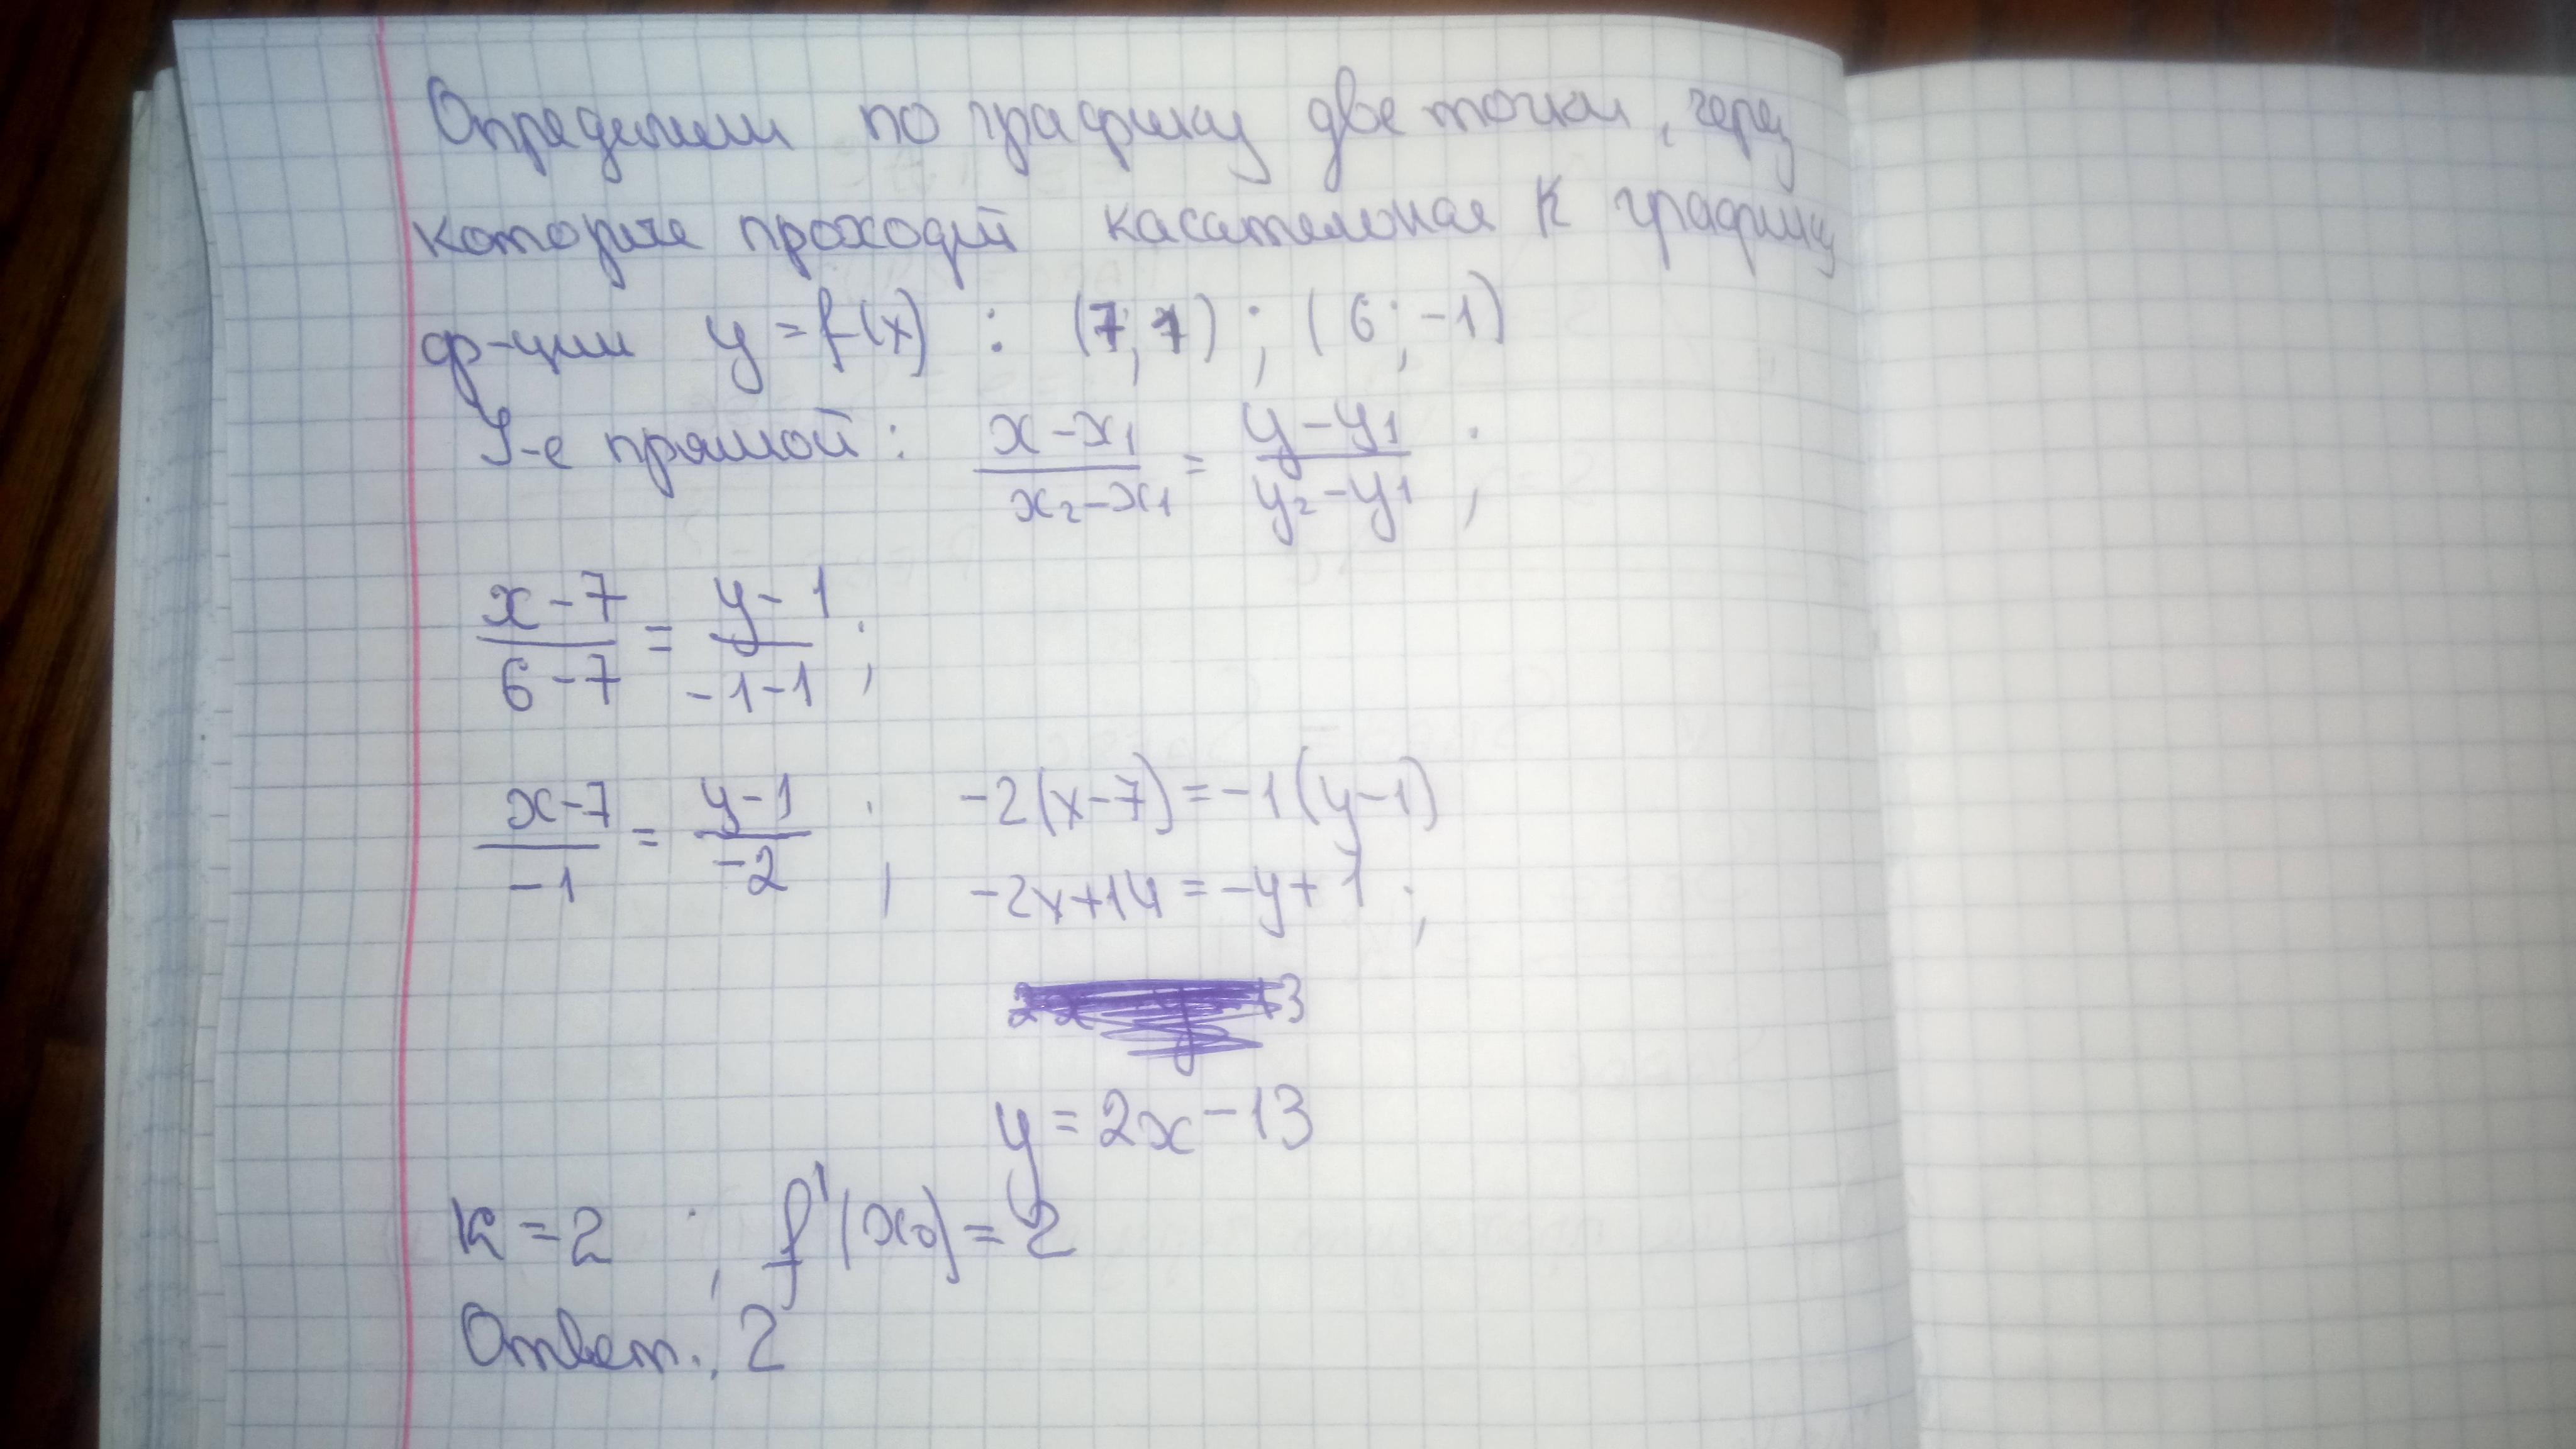 Определим по графику две точки, через
которые проходит касательная к графику
ф-ции y = f(x) : (7; 1) ; (6; -1)
У-е прямой: (x-x₁)/(x₂-x₁) = (y-y₁)/(y₂-y₁) ;
(x-7)/(6-7) = (y-1)/(-1-1) ;
(x-7)/(-1) = (y-1)/(-2) ; -2(x-7) = -1(y-1)
-2x+14 = -y+1 ;
y = 2x-13
k = 2 ; f'(x₀) = 2
Ответ: 2